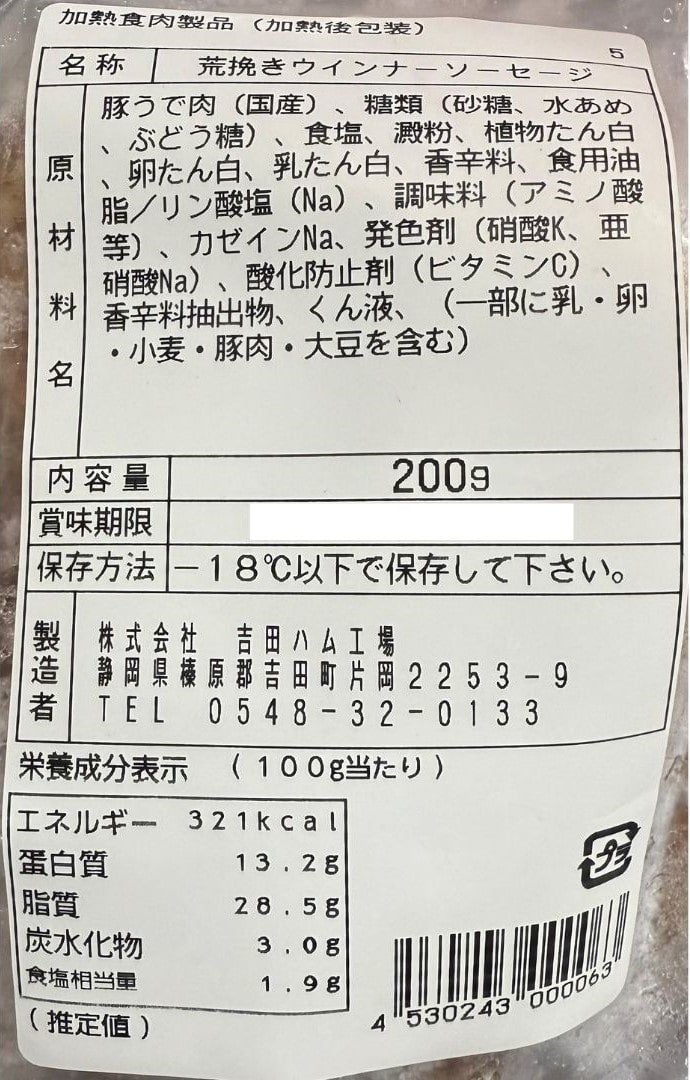 加熱食肉製品（加熱後包装）
5
名称 荒挽きウインナーソーセージ
原材料名
豚うで肉（国産）、糖類（砂糖、水あめ
、ぶどう糖）、食塩、澱粉、植物たん白
、卵たん白、乳たん白、香辛料、食用油
脂／リン酸塩（Na）、調味料（アミノ酸
等）、カゼインNa、発色剤（硝酸K、亜
硝酸Na）、酸化防止剤（ビタミンC）、
香辛料抽出物、くん液、（一部に乳・卵
・小麦・豚肉・大豆を含む）
内容量 200g
賞味期限
保存方法 －１８℃以下で保存して下さい。
製造者
株式会社 吉田ハム工場
静岡県榛原郡吉田町片岡２２５３－９
ＴＥＬ ０５４８－３２－０１３３
栄養成分表示 （１００g当たり）
エネルギー 321kcal
蛋白質 13.2g
脂質 28.5g
炭水化物 3.0g
食塩相当量 1.9g
（推定値）
プラ
4 530243 000063